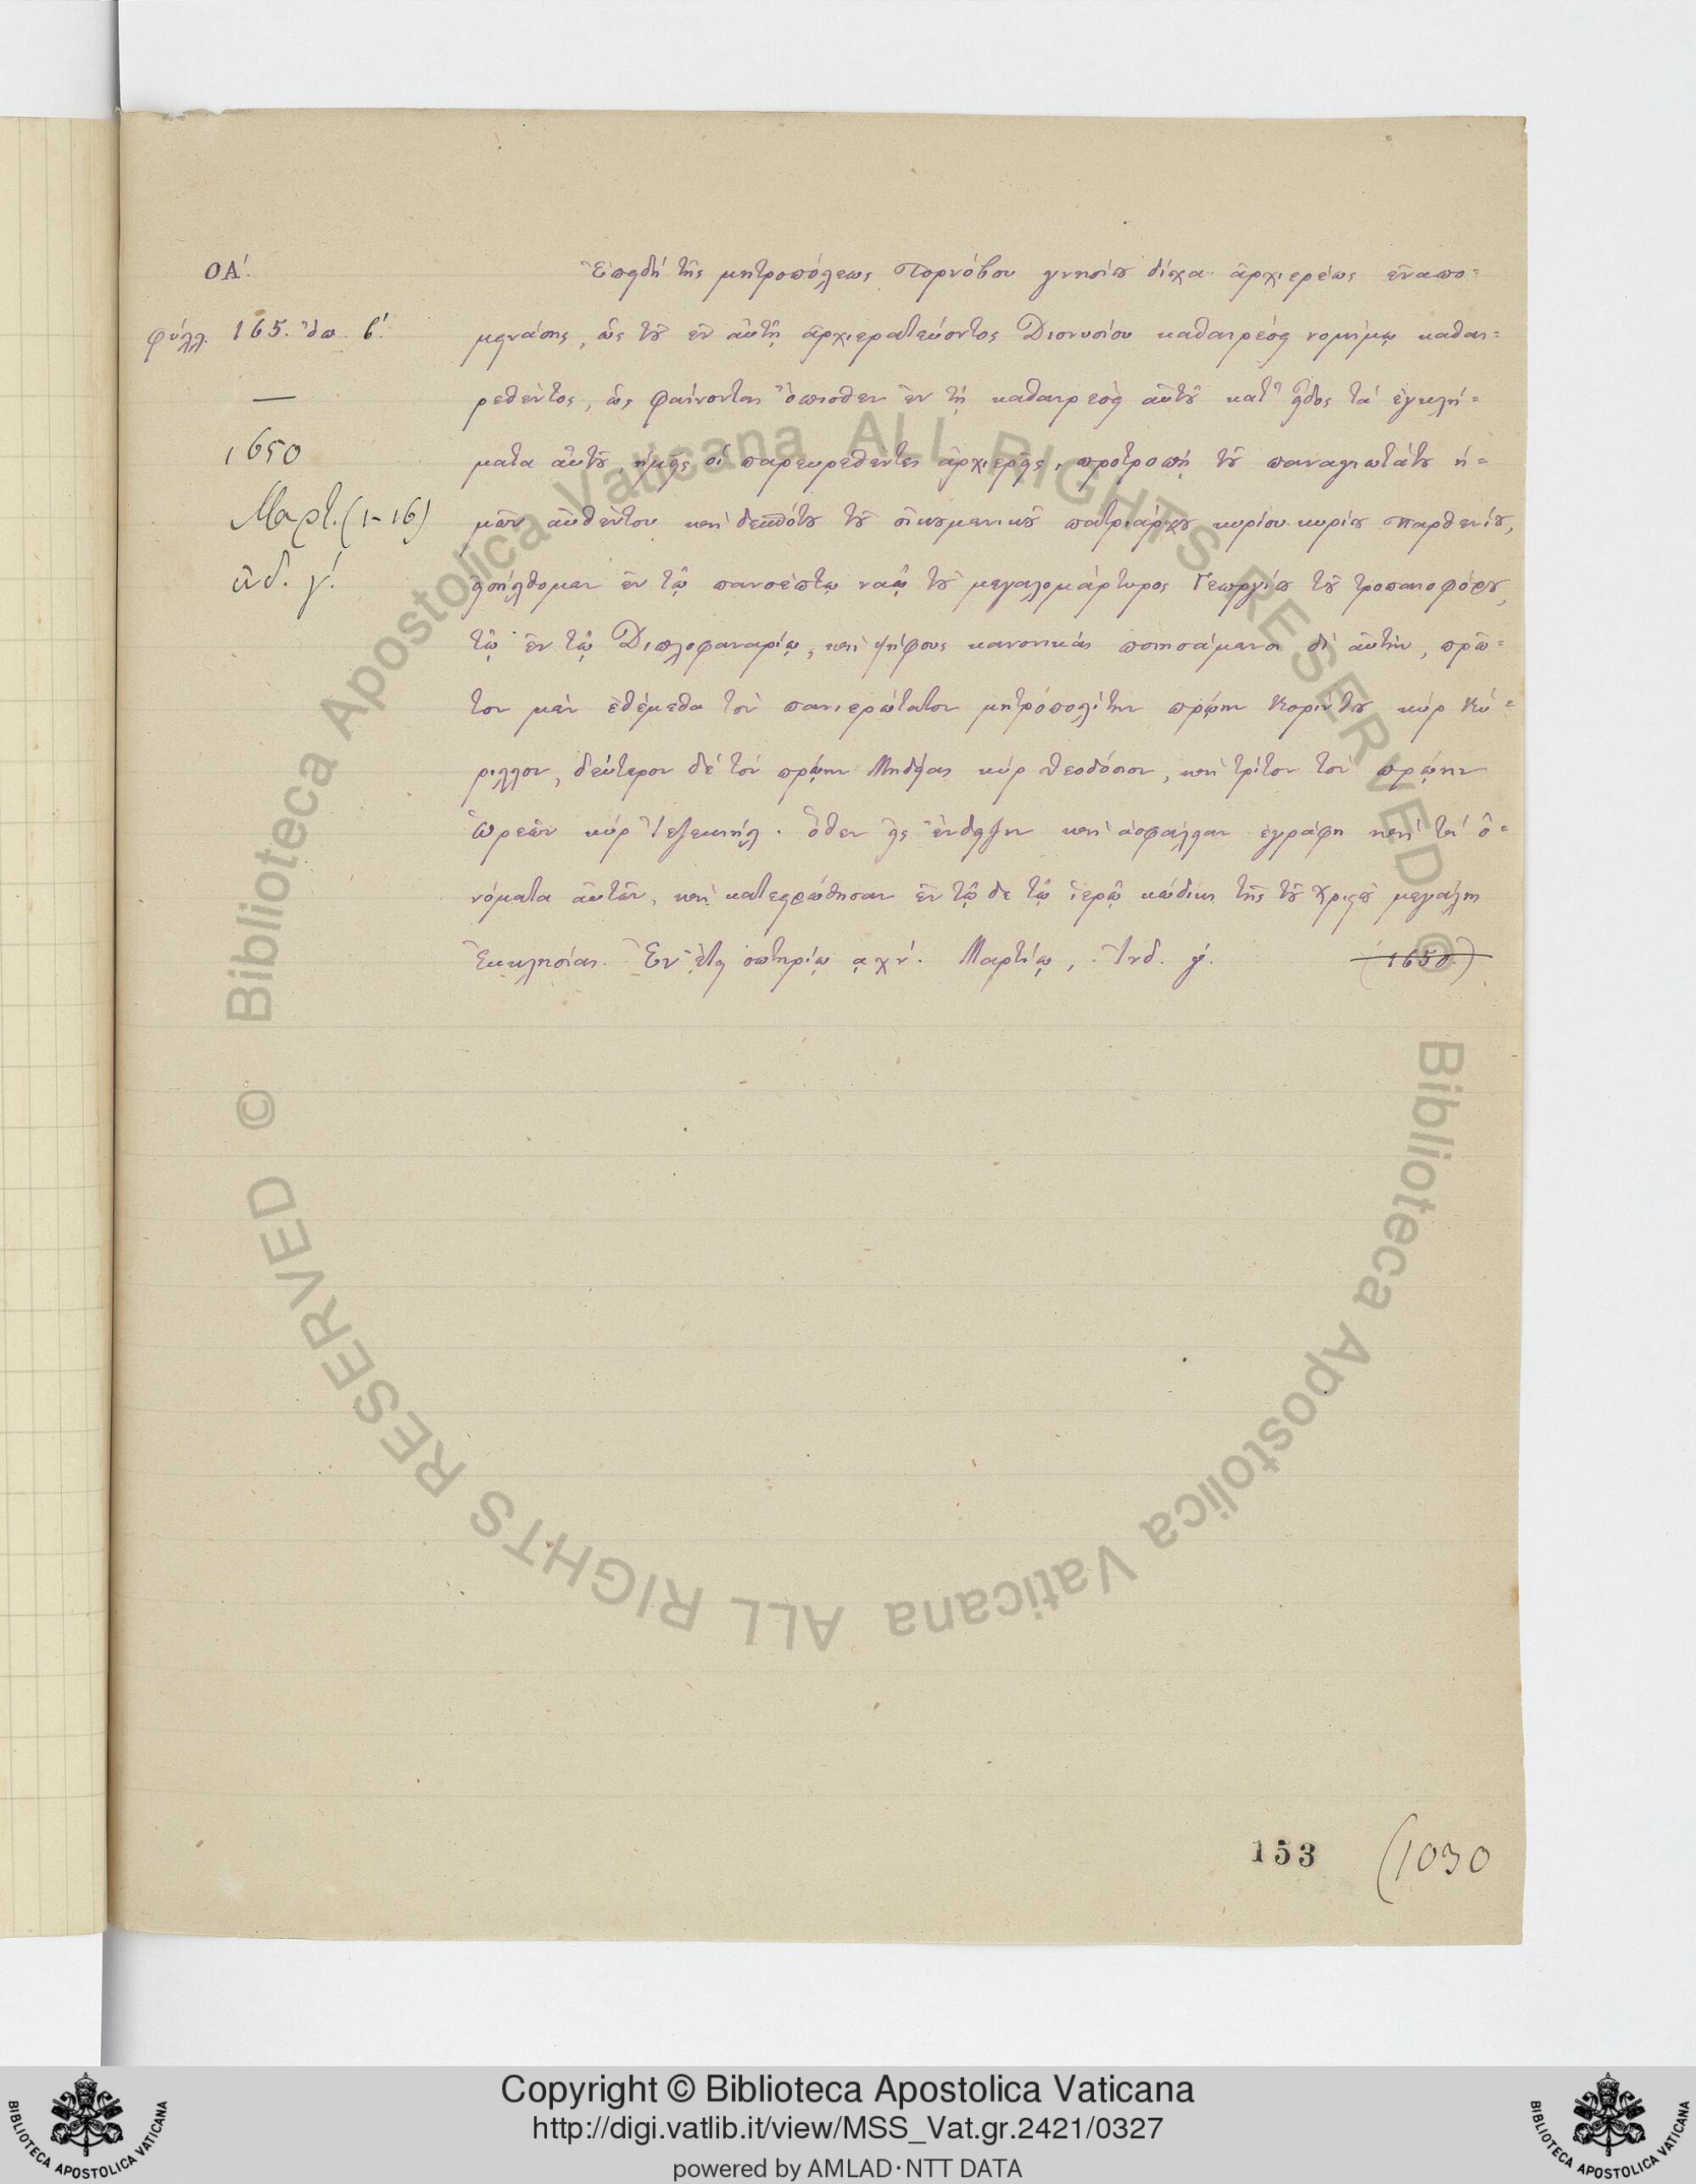 ΟΑ΄.
φύλλ. 165. ὄπ. β΄.
—
1650
Μαρτ. (1-16)
ἰνδ. γ΄.
Ἐπειδὴ τῆς μητροπόλεως Τορνόβου γνησίου δίχα ἀρχιερέως ἐναπο=
μεινάσης, ὡς τοῦ ἐν αὐτῇ ἀρχιερατεύοντος Διονυσίου καθαιρέσει νομίμῳ καθαι=
ρεθέντος, ὡς φαίνονται ὄπισθεν ἐν τῇ καθαιρέσει αὐτοῦ κατ' εἶδος τὰ ἐγκλή=
ματα αὐτοῦ, ἡμεῖς οἱ παρευρεθέντες ἀρχιερεῖς, προτροπῇ τοῦ παναγιωτάτου ἡ=
μῶν αὐθέντου καὶ δεσπότου τοῦ οἰκουμενικοῦ πατριάρχου κυρίου κυρίου Παρθενίου,
εἰσήλθομεν ἐν τῷ πανσέπτῳ ναῷ τοῦ μεγαλομάρτυρος Γεωργίου τοῦ τροπαιοφόρου,
τῷ ἐν τῷ Διπλοφαναρίῳ, καὶ ψήφους κανονικὰς ποιησάμενοι δι' αὐτήν, πρῶ=
τον μὲν ἐθέμεθα τὸν πανιερώτατον μητροπολίτην πρῴην Κορίνθου κύρ Κύ=
ριλλον, δεύτερον δὲ τὸν πρῴην Μηδείας κύρ Θεοδόσιον, καὶ τρίτον τὸν πρῴην
Ὠρεῶν κύρ Ἰεζεκιήλ. ὅθεν εἰς ἔνδειξιν καὶ ἀσφάλειαν ἐγράφη καὶ τὰ ὀ=
νόματα αὐτῶν, καὶ κατεστρώθησαν ἐν τῷδε τῷ ἱερῷ κώδικι τῆς τοῦ Χριστοῦ μεγάλης
Ἐκκλησίας. Ἐν ἔτει σωτηρίῳ ͵αχν΄. Μαρτίῳ, Ἰνδ. γ΄. (1650.)
153 (1030
Copyright © Biblioteca Apostolica Vaticana
http://digi.vatlib.it/view/MSS_Vat.gr.2421/0327
powered by AMLAD·NTT DATA
BIBLIOTECA APOSTOLICA VATICANA
BIBLIOTECA APOSTOLICA VATICANA
© Biblioteca Apostolica Vaticana ALL RIGHTS RESERVED
© Biblioteca Apostolica Vaticana ALL RIGHTS RESERVED